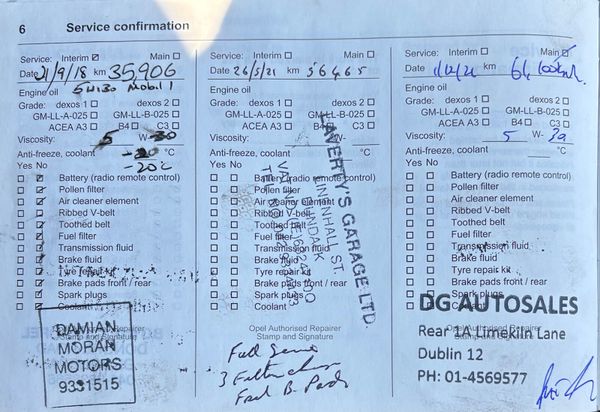 6 Service confirmation
Service: Interim ☑ Main ☐
Date 21/9/18 km 35,906
Engine oil 5W30 Mobil 1
Grade: dexos 1 ☐ dexos 2 ☐
GM-LL-A-025 ☐ GM-LL-B-025 ☐
ACEA A3 ☐ B4 ☐ C3 ☐
Viscosity: 5 W- 30
Anti-freeze, coolant -20 °C
Yes No -20°C
Battery (radio remote control)
Pollen filter
Air cleaner element
Ribbed V-belt
Toothed belt
Fuel filter
Transmission fluid
Brake fluid
Tyre repair kit
Brake pads front / rear
Spark plugs
Coolant
DAMIAN
MORAN
MOTORS
9331515
Service: Interim ☐ Main ☐
Date 26/5/21 km 56465
Engine oil
Grade: dexos 1 ☐ dexos 2 ☐
GM-LL-A-025 ☐ GM-LL-B-025 ☐
ACEA A3 ☐ B4 ☐ C3 ☐
Viscosity: W-
Anti-freeze, coolant °C
Yes No
Battery (radio remote control)
Pollen filter
Air cleaner element
Ribbed V-belt
Toothed belt
Fuel filter
Transmission fluid
Brake fluid
Tyre repair kit
Brake pads front / rear
Spark plugs
Coolant
LAVERTY'S GARAGE LTD
LINENHALL ST.
DUNDALK
Opel Authorised Repairer
Stamp and Signature
Full Service
3 Filters
Front B. Pads
Service: Interim ☐ Main ☑
Date km 64
Engine oil
Grade: dexos 1 ☐ dexos 2 ☐
GM-LL-A-025 ☐ GM-LL-B-025 ☐
ACEA A3 ☐ B4 ☐ C3 ☐
Viscosity: 5 W- 30
Anti-freeze, coolant °C
Yes No
Battery (radio remote control)
Pollen filter
Air cleaner element
Ribbed V-belt
Toothed belt
Fuel filter
Transmission fluid
Brake fluid
Tyre repair kit
Brake pads front / rear
Spark plugs
Coolant
DG AUTOSALES
Rear 11 Limekiln Lane
Dublin 12
PH: 01-4569577